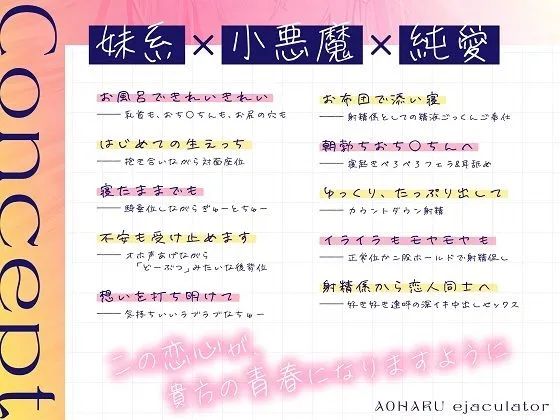 Concept
妹系×小悪魔×純愛
お風呂できれいきれい
――乳首も、おち〇ちんも、お尻の穴も
はじめての生えっち
――抱き合いながら対面座位
寝たままでも
――騎乗位しながらぎゅーとちゅー
不安も受け止めます
――オホ声あげながら
「どーぶつ」みたいな後背位
想いを打ち明けて
――気持ちいいラブラブなちゅー
お布団で添い寝
――射精係としての精液ごっくんご奉仕
朝勃ちおち〇ちんへ
――寝起きぺろぺろフェラ&耳舐め
ゆっくり、たっぷり出して
――カウントダウン射精
イライラもモヤモヤも
――正常位か二股ホールドで射精促し
射精係から恋人同士へ
――好き好き連呼の深イキ中出しセックス
この恋心が、
貴方の青春になりますように
AOHARU ejaculator